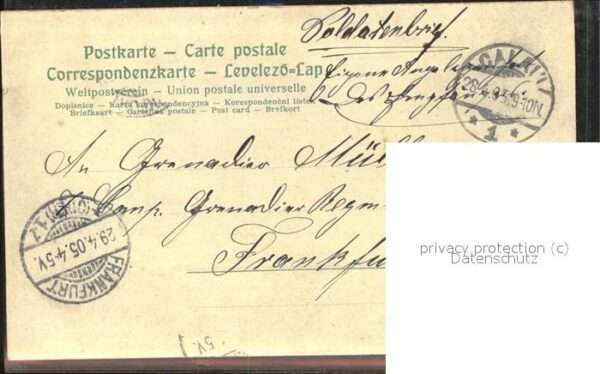 Soldatenbrief.
Postkarte – Carte postale
Correspondenzkarte – Levelező-Lap
Weltpostverein – Union postale universelle
Dopisnice – Karta korespondencyjna – Korespondenční lístek
Briefkaart – Cartolina postale – Post card – Brefkort
Eigene Angelegenheit
des Empfän
CASSEL
1
An Grenadier Mül
Comp. Grenadier Regm
Frankfu
FRANKFURT
29.4.05.4-5V.
privacy protection (c)
Datenschutz
5V.